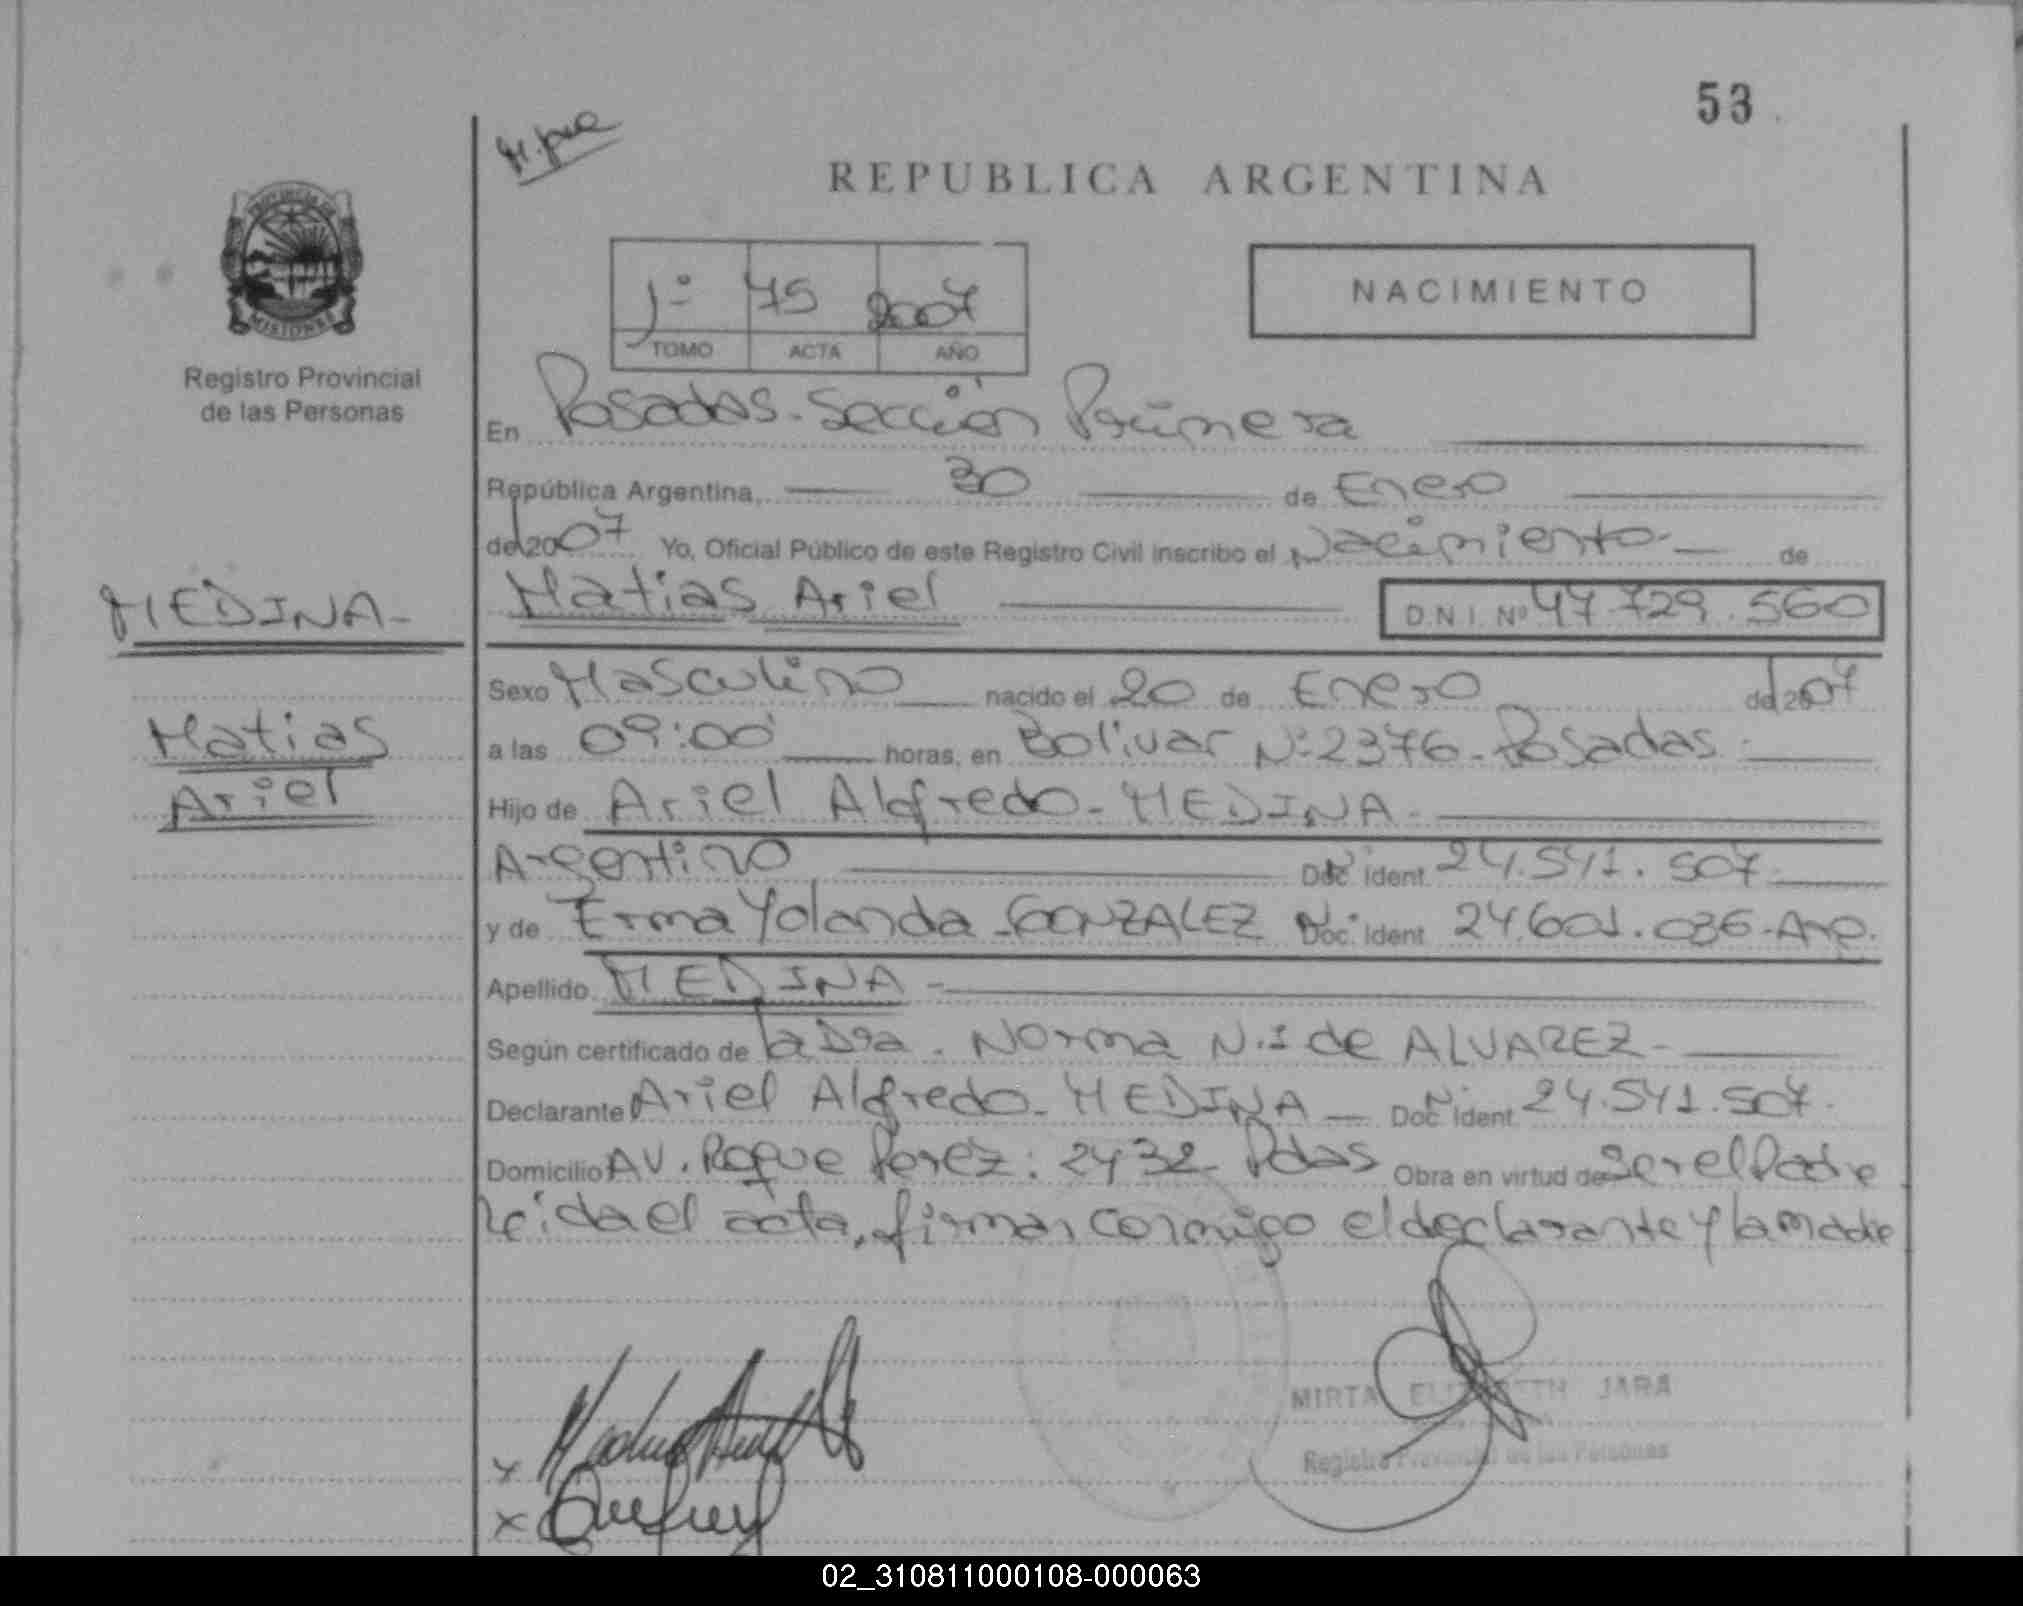 53
M. pue
REPUBLICA ARGENTINA
PROVINCIA DE
MISIONES
1º 75 2007
TOMO ACTA AÑO
NACIMIENTO
Registro Provincial
de las Personas
En Posadas - Sección Primera
República Argentina, 30 de Enero
del 2007 Yo, Oficial Público de este Registro Civil inscribo el Nacimiento - de
MEDINA -
Matias Ariel D.N.I. Nº 47.729.560
Sexo Masculino nacido el 20 de Enero del 2007
Matias
a las 09:00 horas, en Bolivar Nº 2376 - Posadas -
Ariel
Hijo de Ariel Alfredo - MEDINA -
Argentino Doc. Ident. 24.541.507 -
y de Erma Yolanda - GONZALEZ Doc. Ident. 24.601.036 - Arg.
Apellido MEDINA -
Según certificado de la Dra. Norma N. I de ALVAREZ -
Declarante Ariel Alfredo - MEDINA - Doc. Ident. 24.541.507 -
Domicilio AV. Roque Perez: 2432 - Pdas Obra en virtud de ser el Padre
Leida el acta, firman conmigo el declarante y la madre
MIRTA ELIZABETH JARA
Registro Provincial de las Personas
x
x
02_310811000108-000063